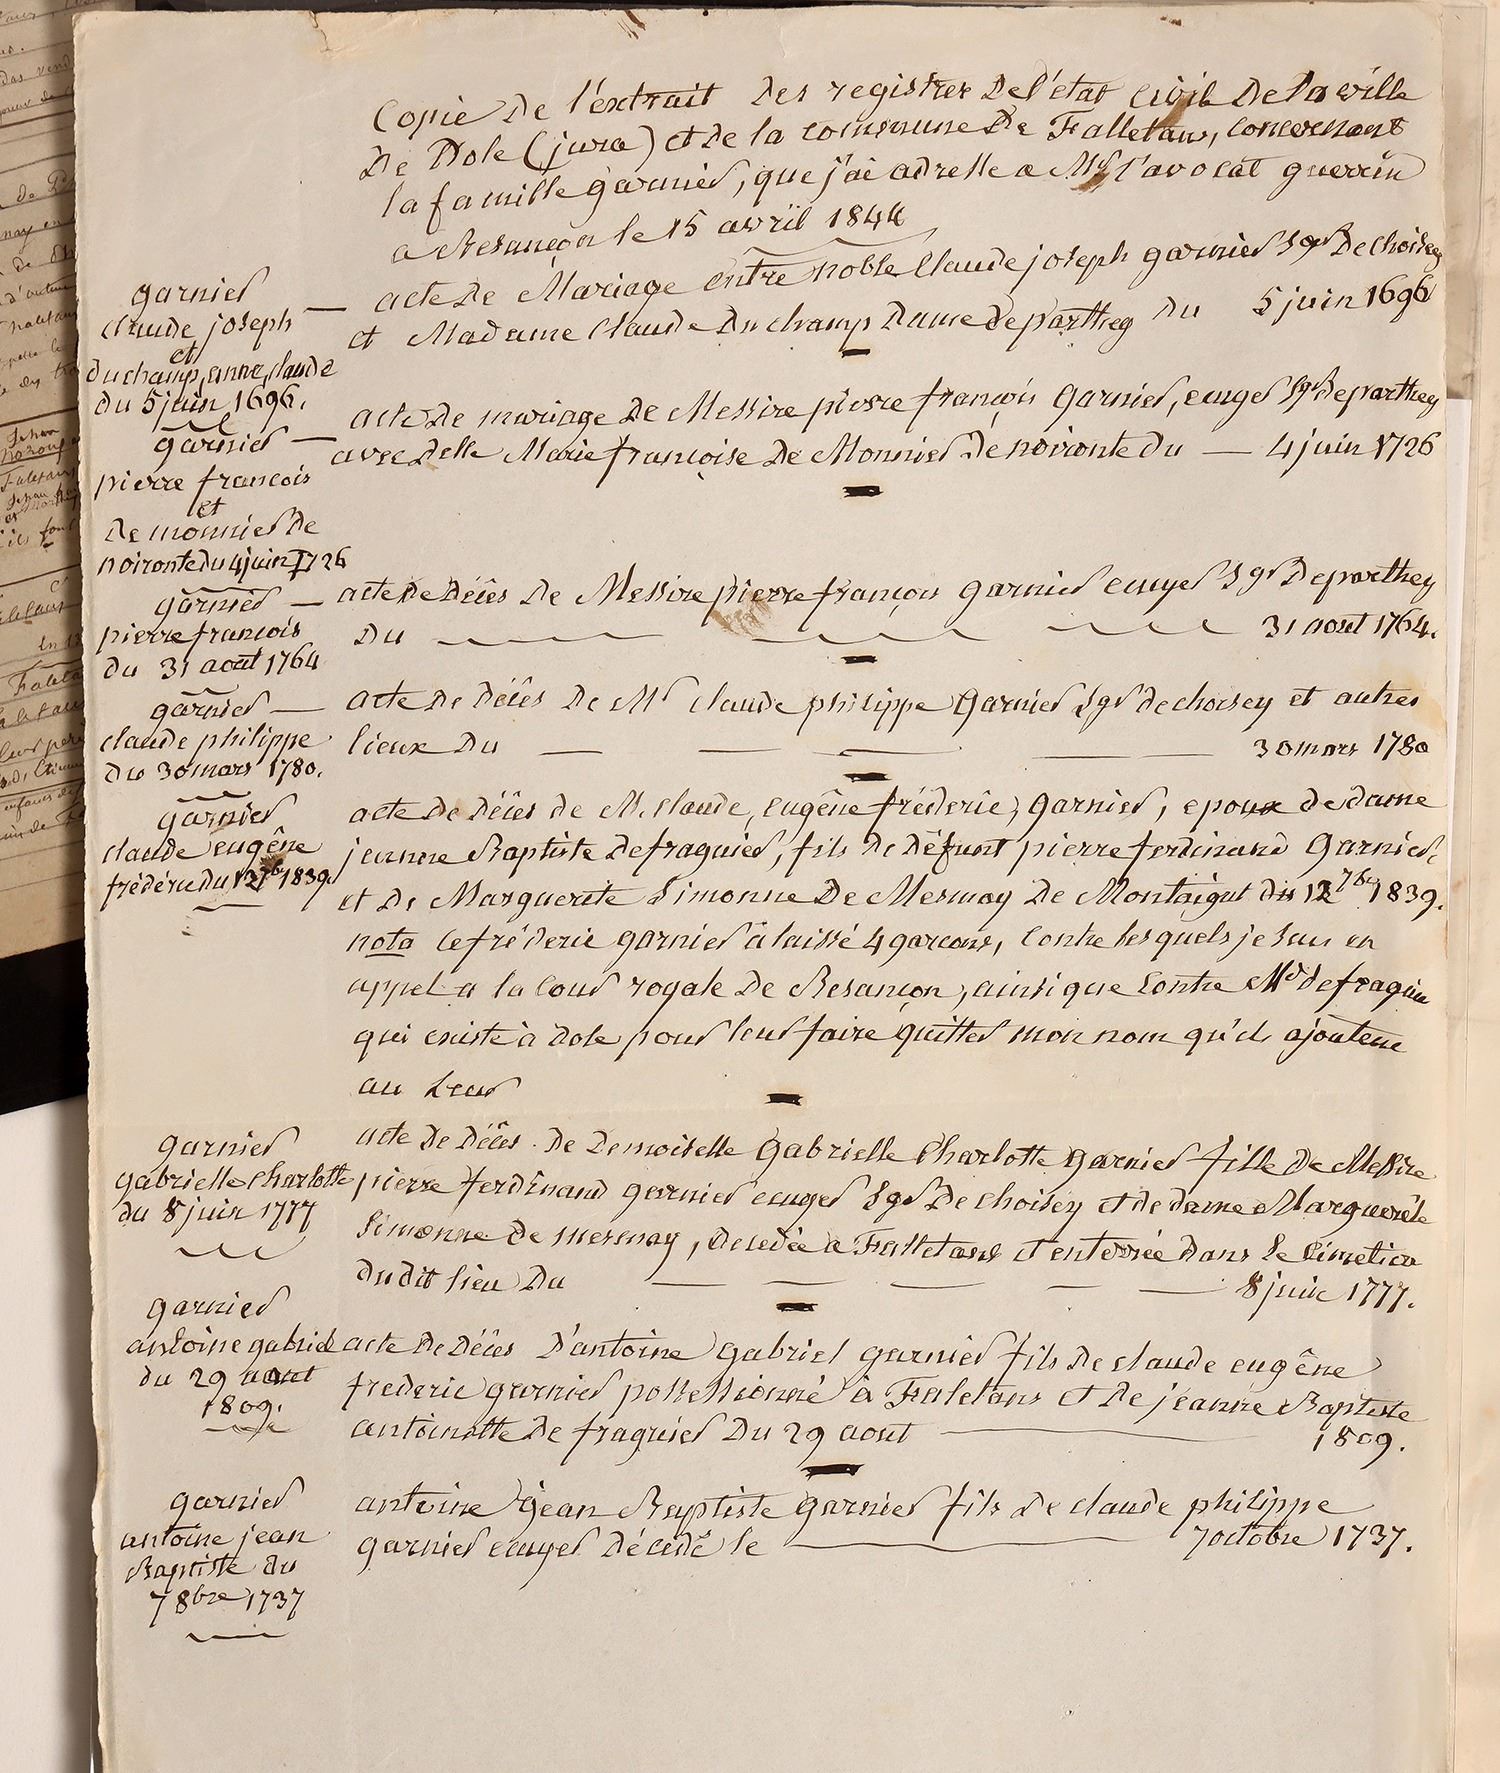 Copie De l'extrait Des registres De l'état civil De la ville
De Dole (jura) et de la commune De Falletans, concernant
la famille garnier, que j'ai adresse a Mr l'avocat guerrin
a Besançon le 15 avril 1844
garnier
claude joseph
et
duchamp, anne, claude
du 5 juin 1696.
acte De Mariage entre noble Claude joseph garnier sgr De choisey
et Madame Claude Duchamp Dame de parthey Du 5 juin 1696
garnier
pierre francois
et
De monnier De
noironte du 4 juin 1726
acte De mariage De Messire pierre françois garnier, ecuyer sgr de parthey
avec Delle Marie françoise De Monnier De noironte du — 4 juin 1726
garnier
pierre francois
du 31 août 1764
acte De Décès De Messire pierre françois garnier ecuyer sgr De parthey
Du 31 aout 1764.
garnier
claude philippe
du 30 mars 1780.
acte De Décès De Mr claude philippe garnier sgr de choisey et autres
lieux Du 30 mars 1780
garnier
claude eugêne
frédéric du 12 7bre 1839.
acte De Décès de M. claude, eugêne fréderic, garnier, epoux de dame
jeanne Baptiste defraguier, fils De Défunt pierre ferdinand garnier
et De Marguerite Simonne De Mesmay De Montaigut du 12 7bre 1839.
nota ce fréderic garnier à laissé 4 garcons, contre lesquels je suis en
appel a la Cour royale De Besançon, ainsi que contre Mr defraguier
qui existe à Dole pour leur faire quitter mon nom qu'ils ajoutent
au leur
garnier
gabrielle Charlotte
du 8 juin 1777
acte De Décès De Demoiselle gabrielle Charlotte garnier fille De Messire
pierre ferdinand garnier ecuyer sgr De choisey et de dame Marguerite
Simonne De mesmay, decedée a Falletans et enterrée dans le Cimetiere
du dit lieu Du 8 juin 1777.
garnier
antoine gabriel
du 29 aout
1809.
acte De Décès D'antoine gabriel garnier fils De claude eugêne
frederic garnier possessionné à Falletans et De jeanne Baptiste
antoinette De fraguier Du 29 aout 1809.
garnier
antoine jean
Baptiste du
7 8bre 1737
antoine jean Baptiste garnier fils De claude philippe
garnier ecuyer Décédé le 7 octobre 1737.